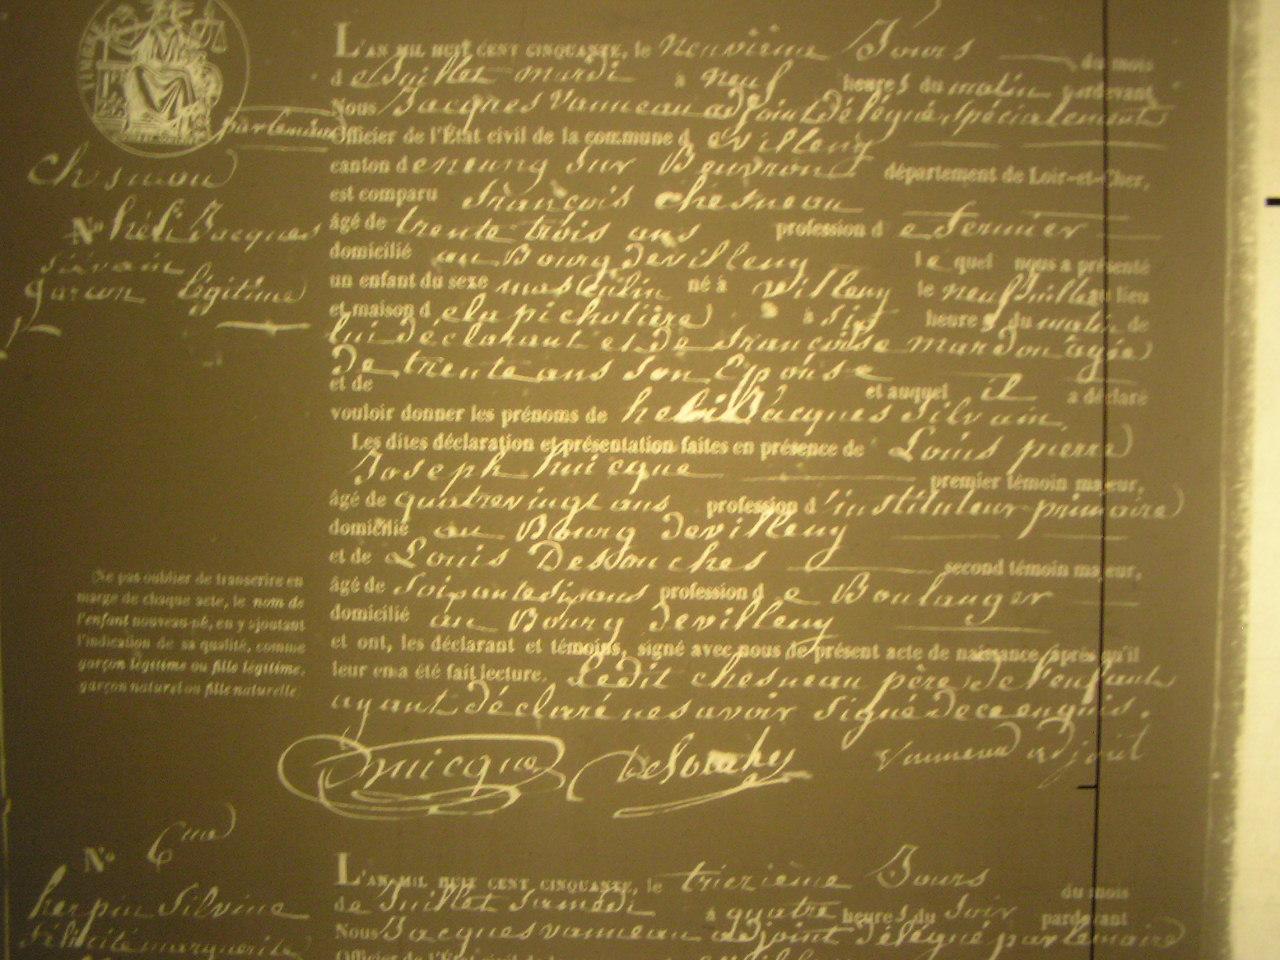 TIMBRE
L'AN MIL HUIT CENT CINQUANTE, le neuvième Jours du mois
de Juillet mardi à neuf heures du matin pardevant
Nous Jacques Vanneau adjoint délégué spécialement
par le maire Officier de l'État civil de la commune de villeny
canton de neung sur Beuvron département de Loir-et-Cher,
est comparu François chesneau
âgé de trente trois ans profession de fermier
domicilié au Bourg devilleny lequel nous a présenté
un enfant du sexe masculin né à villeny le neuf juillet au lieu
et maison de la picholière à six heures du matin de
lui déclarant et de françoise mardon âgée
de trente ans son Epouse
et de et auquel il a déclaré
vouloir donner les prénoms de heli Jacques Silvain
Les dites déclaration et présentation faites en présence de Louis pierre
Joseph huicque premier témoin majeur,
âgé de quatrevingt ans profession d'instituteur primaire
domicilié au Bourg devilleny
et de Louis Desouches second témoin majeur,
âgé de soixante six ans profession de Boulanger
domicilié au Bourg devilleny
et ont, les déclarant et témoins, signé avec nous de présent acte de naissance, après qu'il
leur en a été fait lecture. Ledit chesneau père de l'enfant
ayant déclaré ne savoir signé de ce enquis.
huicque Desouches Vanneau adjoint
chesneau
No heli Jacques
Silvain
garçon légitime
Ne pas oublier de transcrire en
marge de chaque acte, le nom de
l'enfant nouveau-né, en y ajoutant
l'indication de sa qualité, comme
garçon légitime ou fille légitime,
garçon naturel ou fille naturelle
No 6me
herpin Silvine
félicité marguerite
L'AN MIL HUIT CENT CINQUANTE, le treizième Jours du mois
de Juillet Samedi à quatre heures du Soir pardevant
Nous Jacques vanneau adjoint délégué par le maire
Officier de l'État civil de la